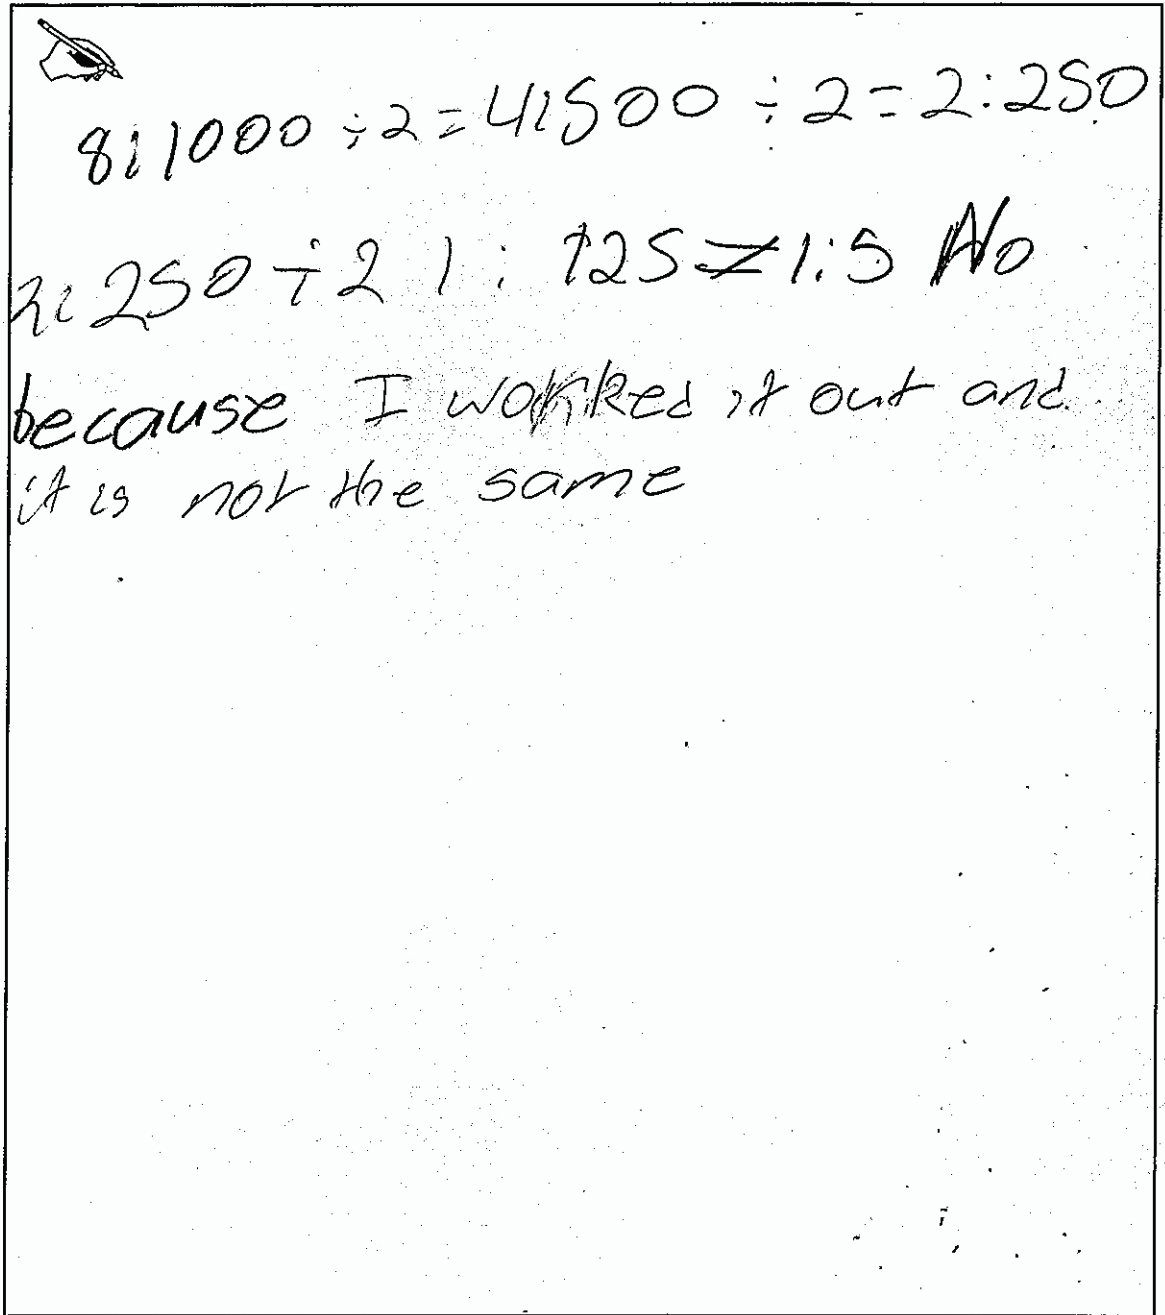 8:1000 ÷ 2 = 4:500 ÷ 2 = 2:250
2:250 ÷ 2 1 : 125 ≠ 1:5 No
because I worked it out and
it is not the same